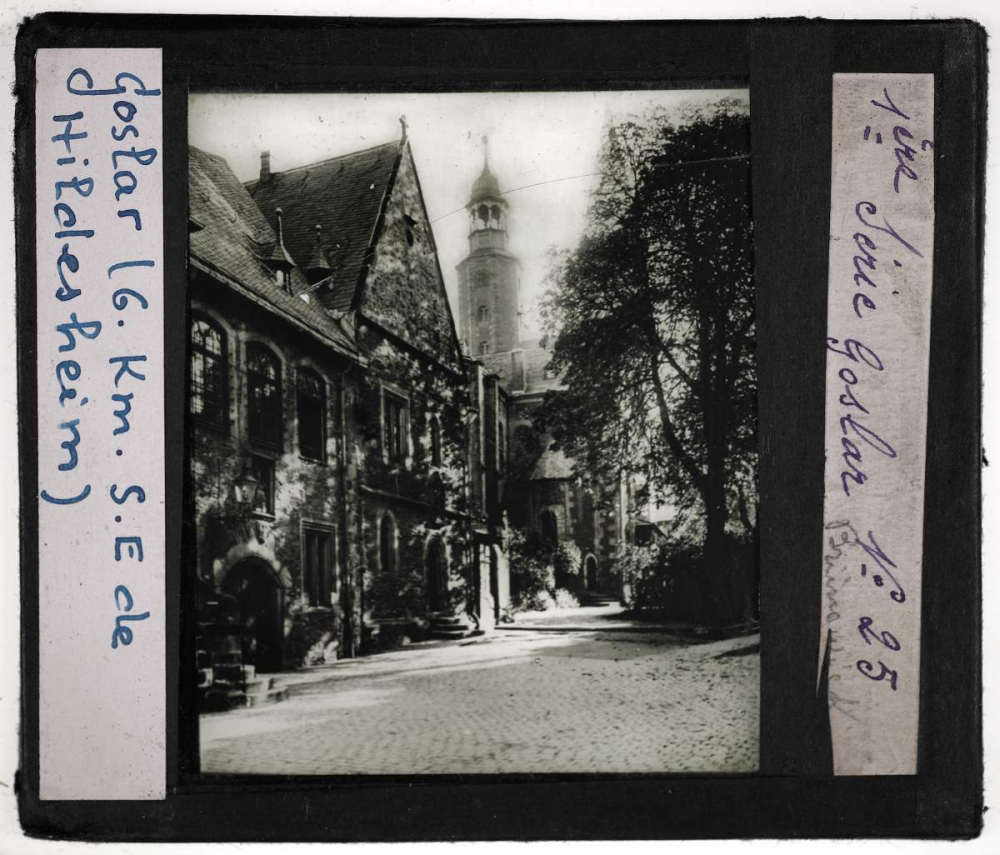 Goslar (6. Km. S.E de
Hildesheim)
1ère Série Goslar Nº 25